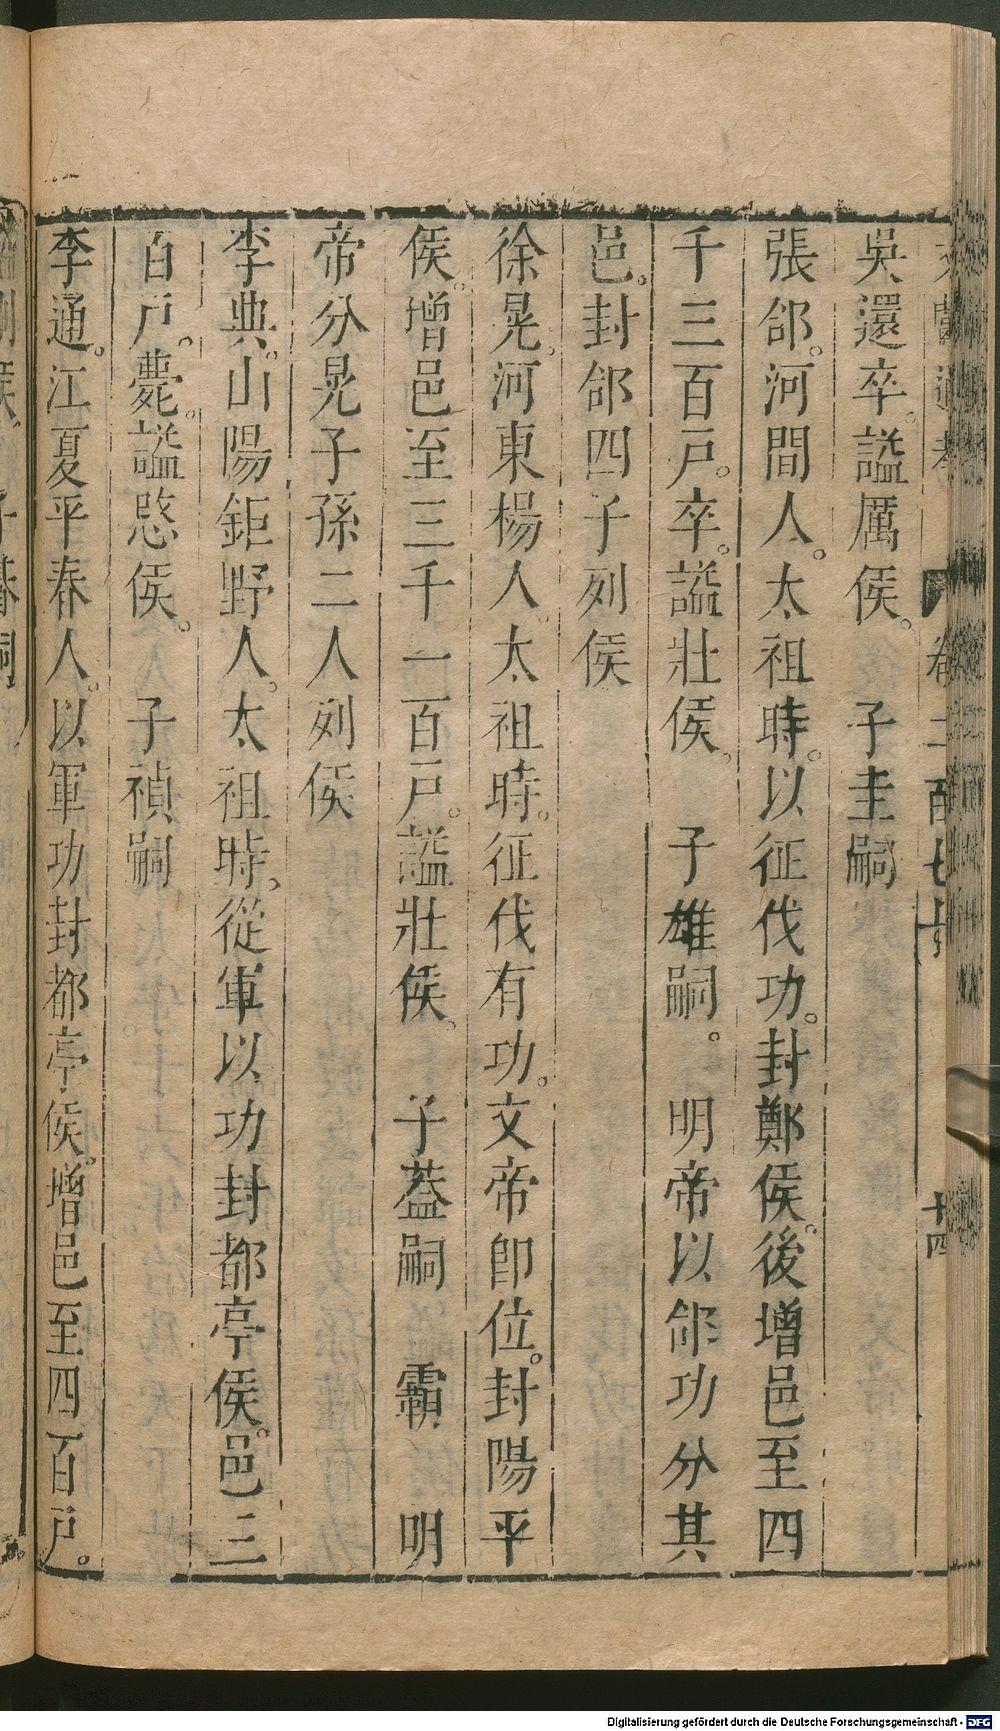 吳還卒。謚厲侯。　子圭嗣
張郃。河間人。太祖時。以征伐功。封鄭侯。後增邑至四
千三百戶。卒。謚壯侯。　子雄嗣。　明帝以郃功分其
邑。封郃四子列侯
徐晃。河東楊人。太祖時。征伐有功。文帝即位。封陽平
侯。增邑至三千一百戶。謚壯侯。　子蓋嗣　霸　明
帝分晃子孫二人列侯
李典。山陽鉅野人。太祖時。從軍以功封都亭侯。邑三
百戶。薨。謚愍侯。　子禎嗣
李通。江夏平春人。以軍功封都亭侯。增邑至四百戶。
卷二百七十
十四
Digitalisierung gefördert durch die Deutsche Forschungsgemeinschaft - DFG